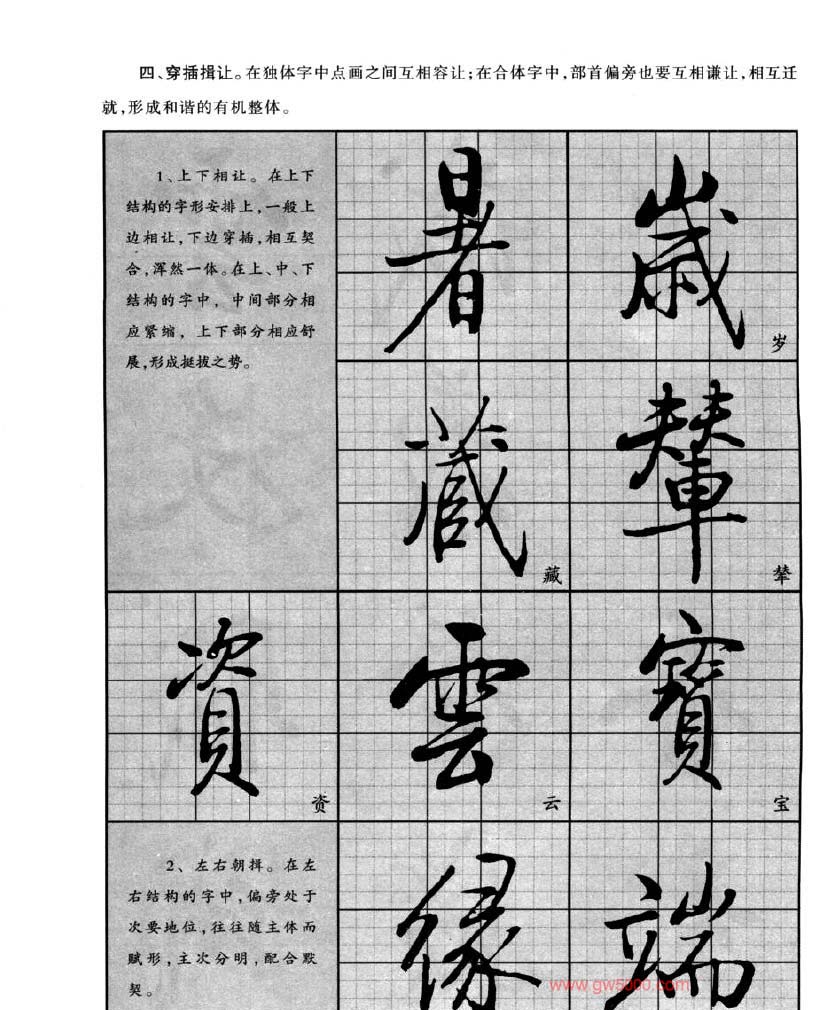 四、穿插揖让。在独体字中点画之间互相容让;在合体字中,部首偏旁也要互相谦让,相互迁
就,形成和谐的有机整体。
1、上下相让。在上下
结构的字形安排上,一般上
边相让,下边穿插,相互契
合,浑然一体。在上、中、下
结构的字中,中间部分相
应紧缩,上下部分相应舒
展,形成挺拔之势。
暑
歲
岁
藏
藏
輦
辇
資
资
雲
云
寶
宝
2、左右朝揖。在左
右结构的字中,偏旁处于
次要地位,往往随主体而
赋形,主次分明,配合默
契。
緣
端
www.gw5000.com